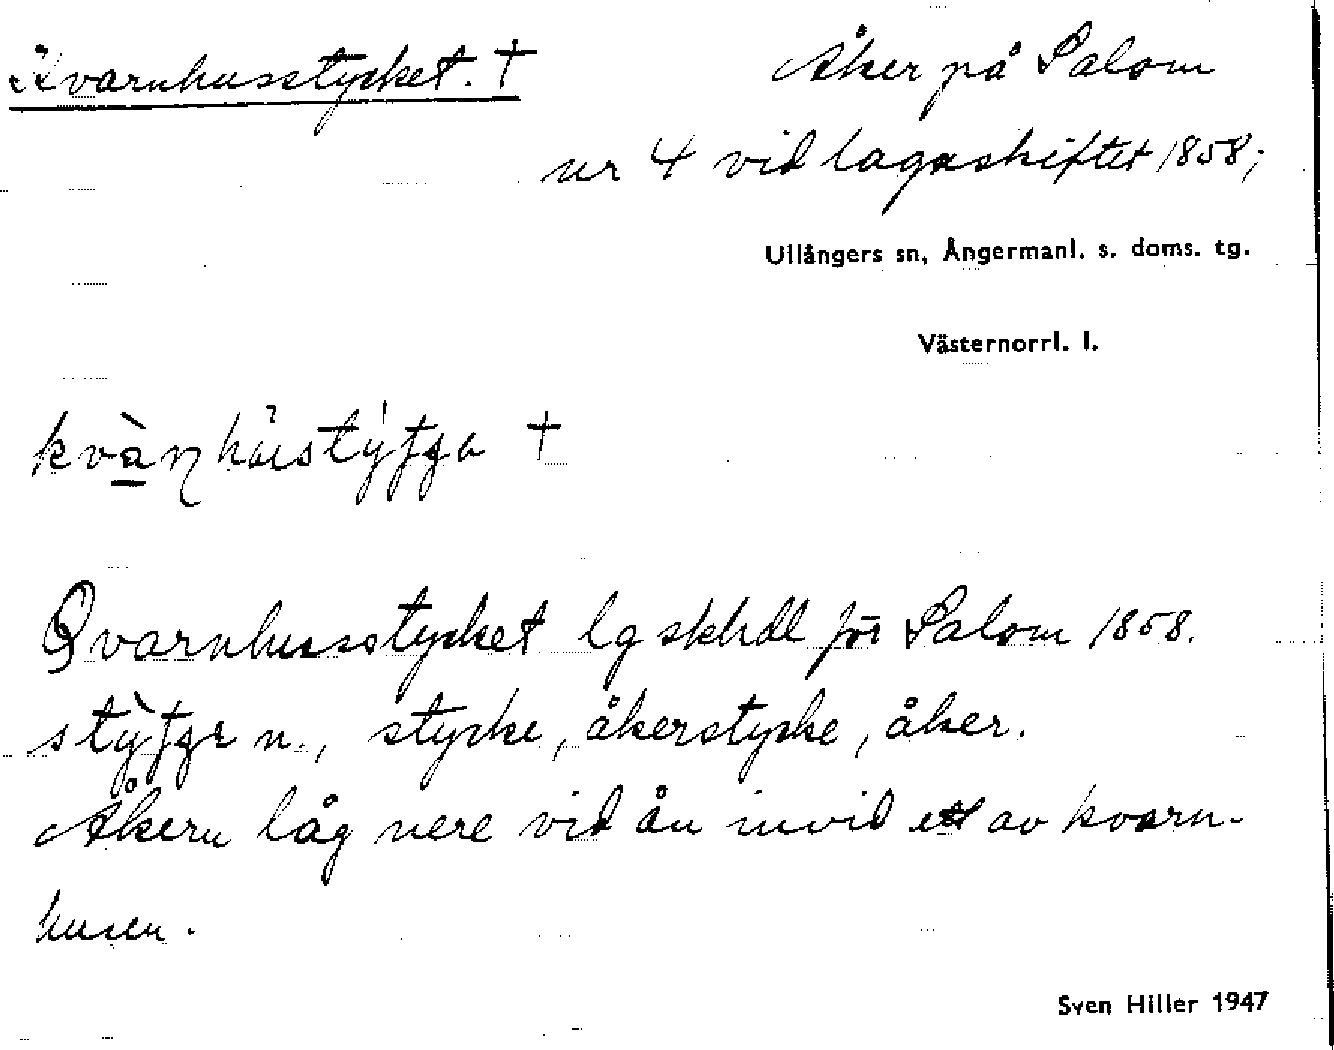 Kvarnhusstycket. † Åker på Salom
nr 4 vid lagaskiftet 1858;
Ullångers sn, Ångermanl. s. doms. tg.
Västernorrl. l.
†
Qvarnhusstycket lg skhdl för Salom 1858.
n., stycke, åkerstycke, åker.
Åkern låg nere vid ån invid ett av kvarn-
husen.
Sven Hiller 1947